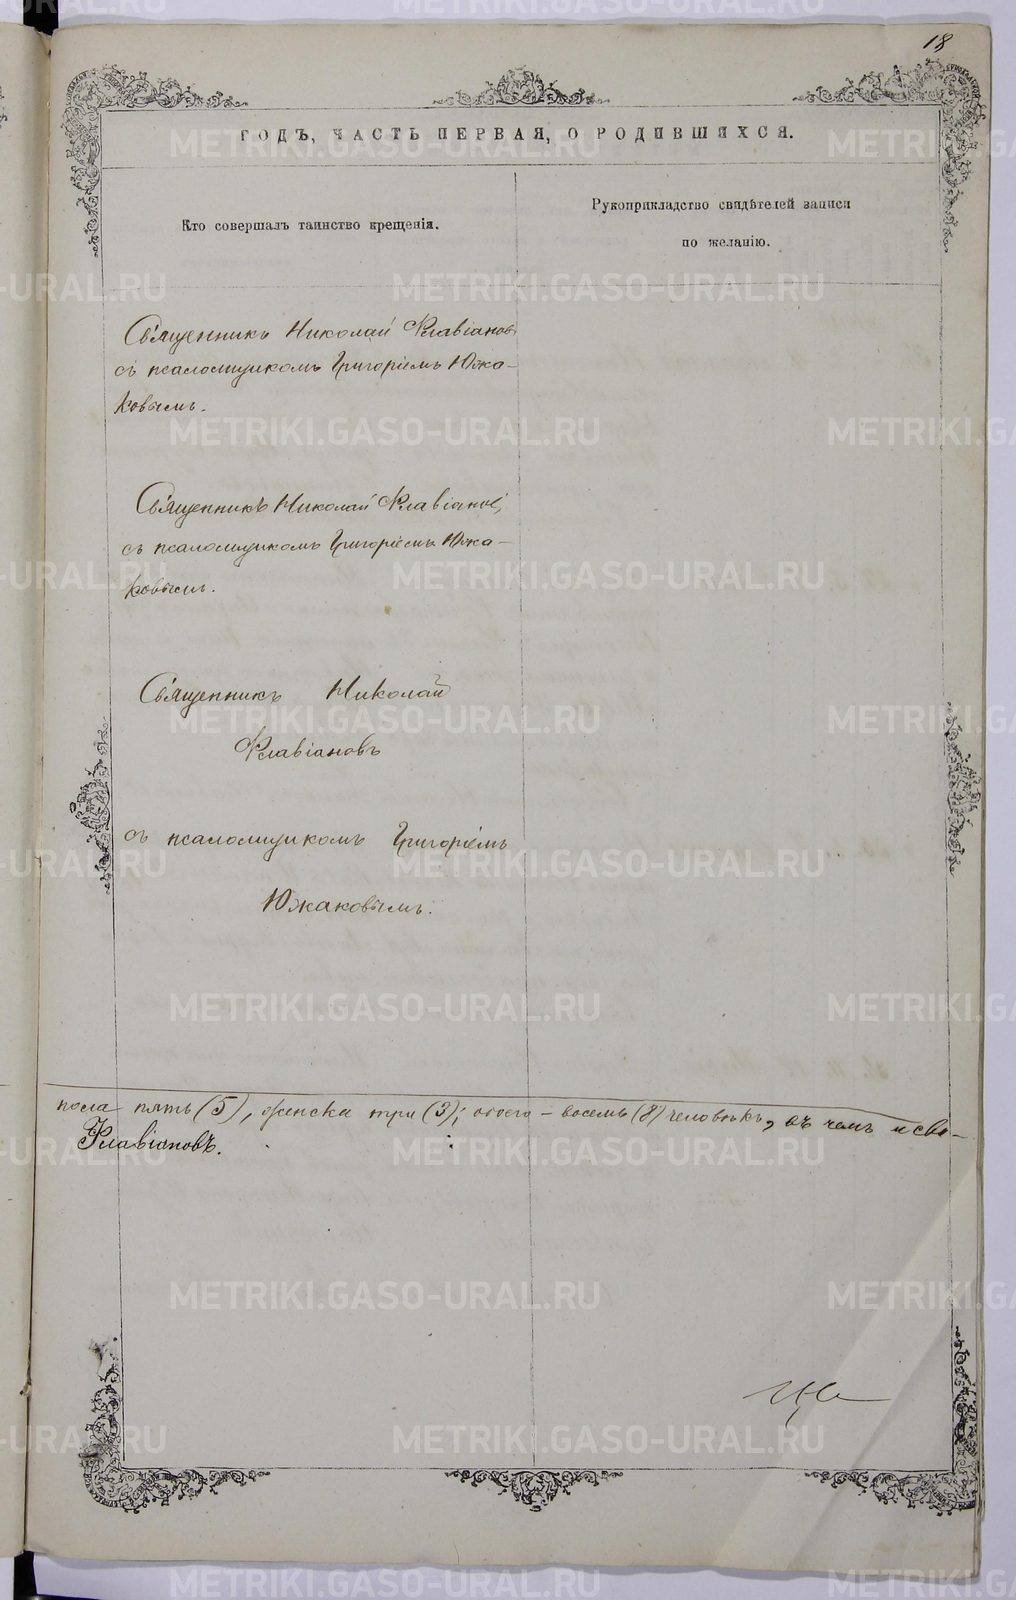 18
ГОДЪ, ЧАСТЬ ПЕРВАЯ, О РОДИВШИХСЯ.
Кто совершалъ таинство крещенія.
Рукоприкладство свидѣтелей записи
по желанію.
Священникъ Николай Флавіановъ
съ псаломщикомъ Григоріемъ Южа-
ковымъ.
Священникъ Николай Флавіановъ,
съ псаломщикомъ Григоріемъ Южа-
ковымъ.
Священникъ Николай
Флавіановъ
съ псаломщикомъ Григоріемъ
Южаковымъ.
пола пять (5), женска три (3); обоего - восемь (8) человѣкъ, въ чемъ и сви-
Флавіановъ.
METRIKI.GASO-URAL.RU